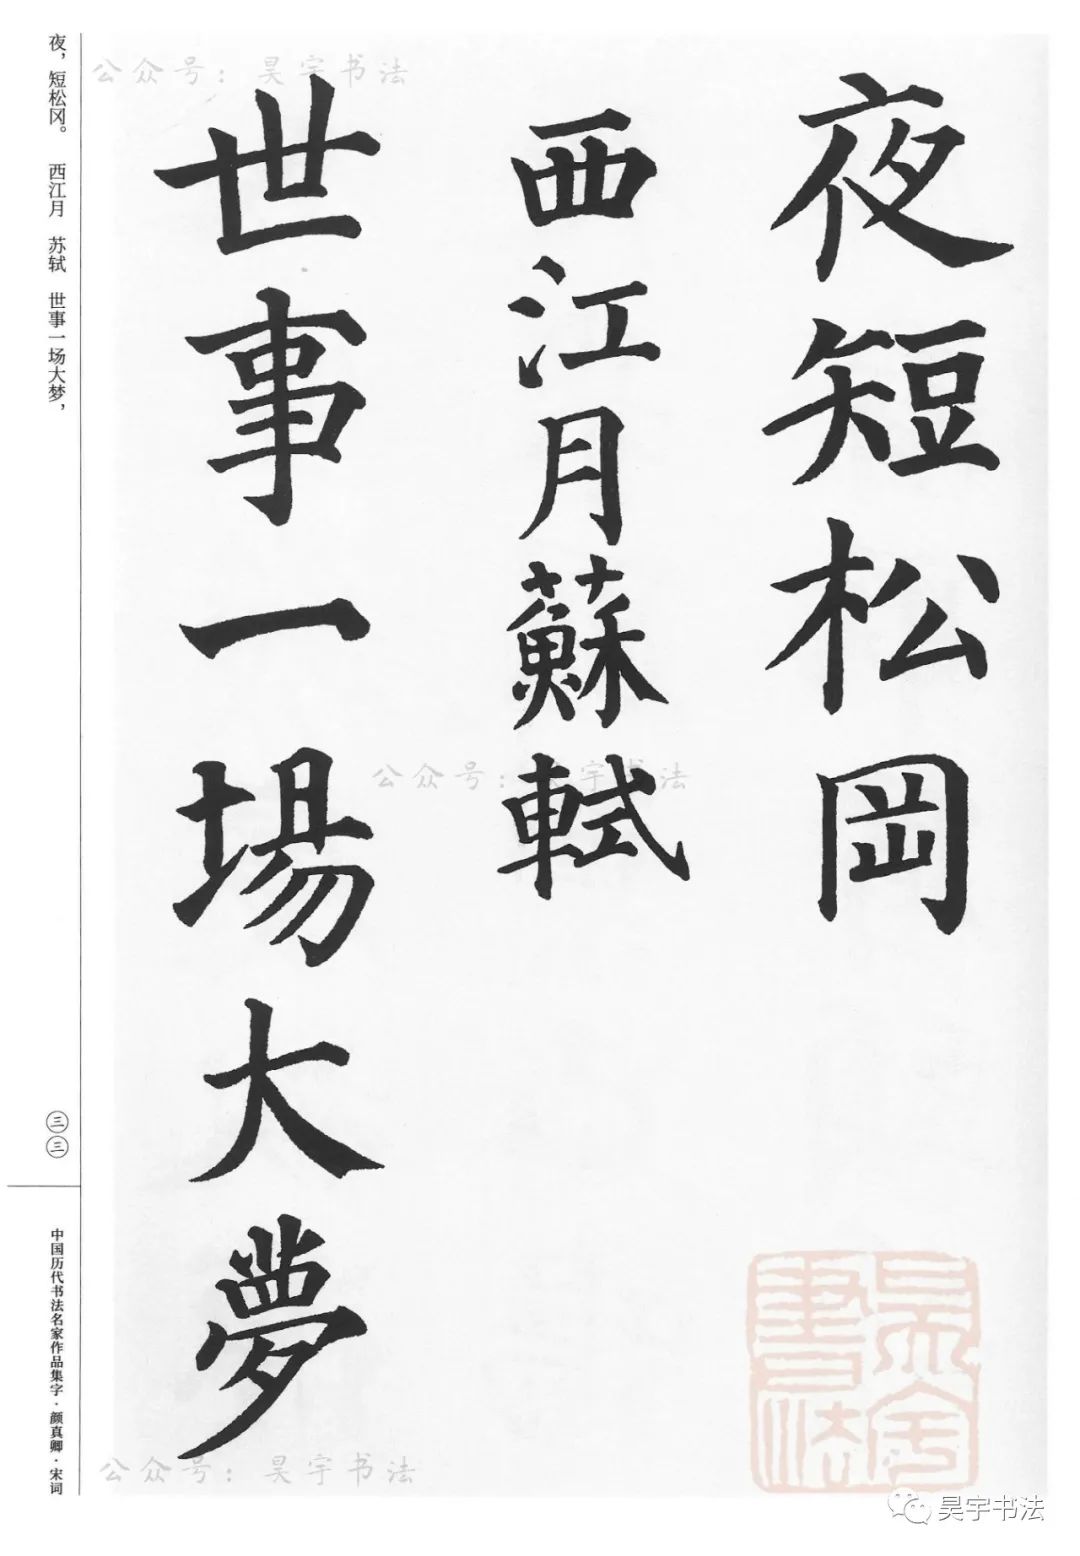 夜短松岡
西江月蘇軾
世事一場大夢
夜，短松冈。　西江月　苏轼　世事一场大梦，
三三
中国历代书法名家作品集字·颜真卿·宋词
公众号：昊宇书法
公众号：昊宇书法
公众号：昊宇书法
昊宇書法
昊宇书法